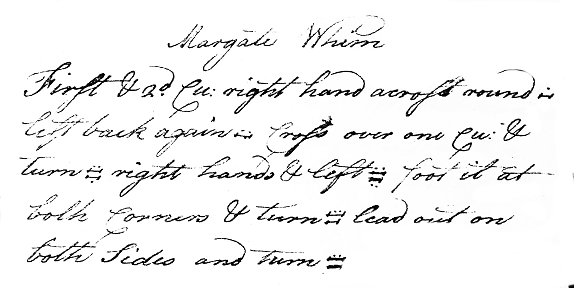 Margate Whim
First & 2d. Cu: right hand across round
left back again cross over one Cu: &
turn right hands & left foot it at
both corners & turn lead out on
both sides and turn